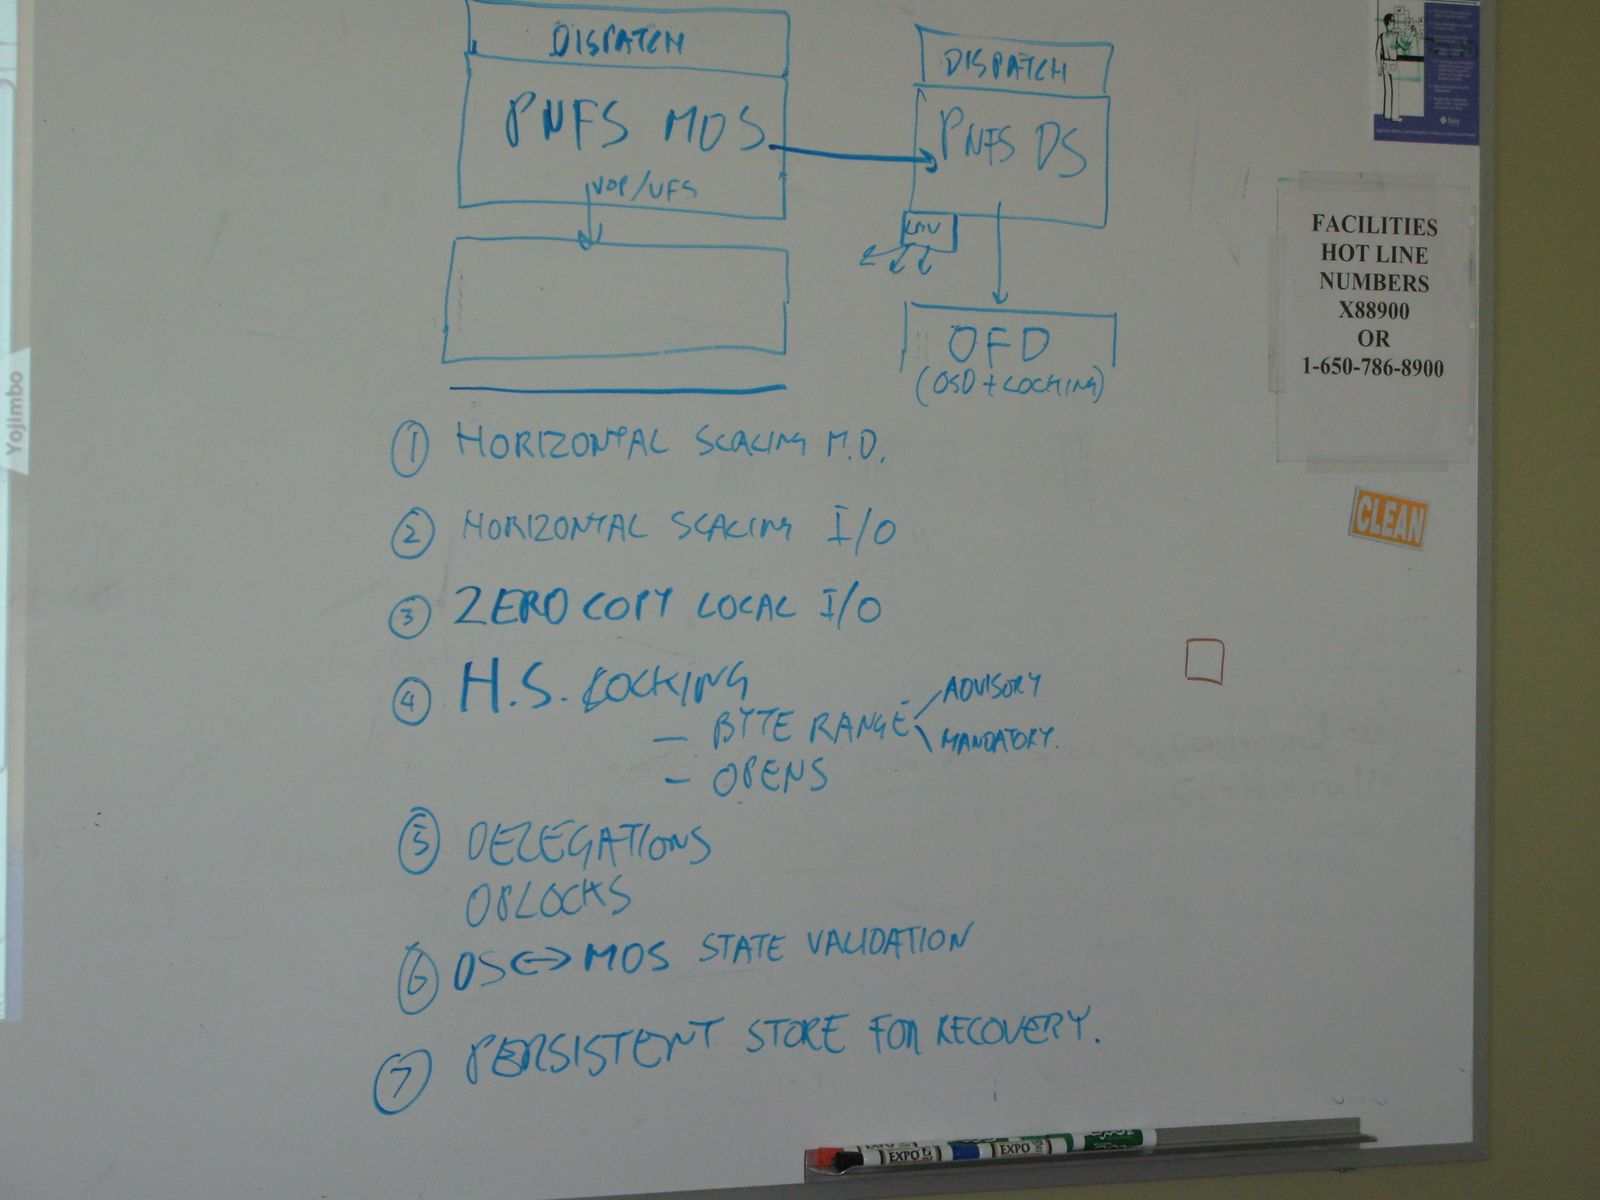 DISPATCH
PNFS MDS
VOP/VFS
DISPATCH
PNFS DS
OFD
(OSD + LOCKING)
① HORIZONTAL SCALING M.D.
② HORIZONTAL SCALING I/O
③ ZERO COPY LOCAL I/O
④ H.S. LOCKING
— BYTE RANGE
ADVISORY
MANDATORY.
— OPENS
⑤ DELEGATIONS
OPLOCKS
⑥ DS <-> MDS STATE VALIDATION
⑦ PERSISTENT STORE FOR RECOVERY.
FACILITIES
HOT LINE
NUMBERS
X88900
OR
1-650-786-8900
CLEAN
Yojimbo
EXPO
EXPO